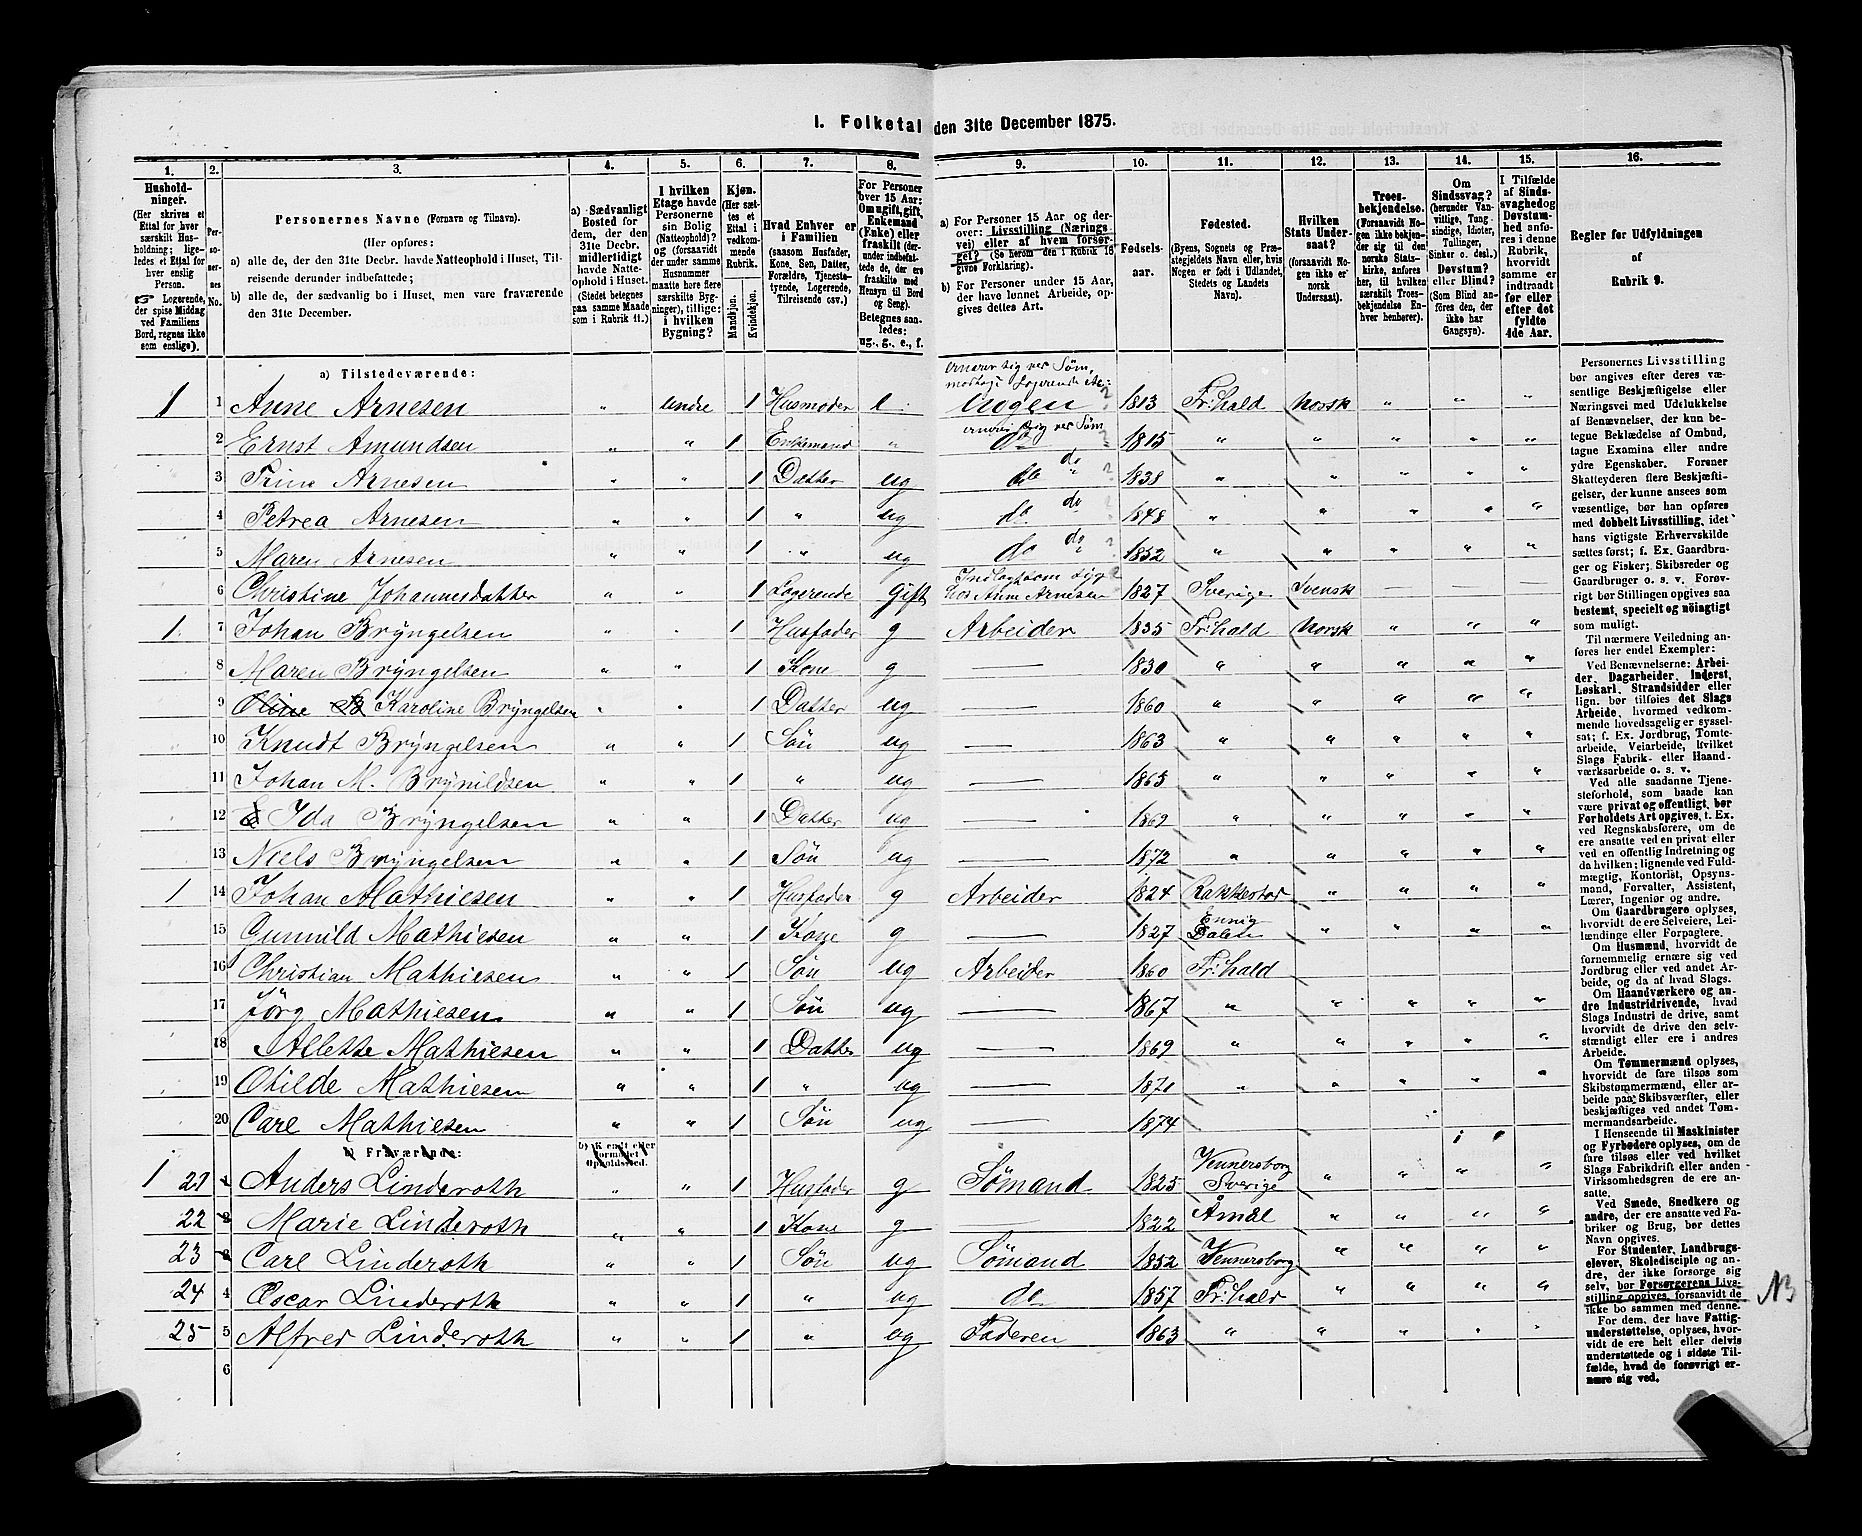 I. Folketal den 31te December 1875.
1. 2. 3. 4. 5. 6. 7. 8. 9. 10. 11. 12. 13. 14. 15. 16.
Husholdninger. (Her skrives et Ettal for hver særskilt Husholdning; ligeledes et Ettal for hver enslig Person. Logerende, der spise Middag ved Familiens Bord, regnes ikke som enslige).
Personernes No.
Personernes Navne (Fornavn og Tilnavn).
(Her opføres:
a) alle de, der den 31te Decbr. havde Natteophold i Huset, Tilreisende derunder indbefattede;
b) alle de, der sædvanlig bo i Huset, men vare fraværende den 31te December.
a) Sædvanligt Bosted for dem, der den 31te Decbr. midlertidigt havde Natteophold i Huset. (Stedet betegnes paa samme Maade som i Rubrik 11.)
I hvilken Etage havde Personerne sin Bolig (Natteophold)? og (forsaavidt der under samme Husnummer maatte høre flere særskilte Bygninger), tillige: i hvilken Bygning?
Kjøn. (Her sættes et Ettal i vedkommende Rubrik. Mandkjøn. Kvindekjøn.
Hvad Enhver er i Familien (saasom Husfader, Kone, Søn, Datter, Forældre, Tjenestetyende, Logerende, Tilreisende osv.)
For Personer over 15 Aar: Om ugift, gift, Enkemand (Enke) eller fraskilt (derunder indbefattede de, der ere fraskilte med Hensyn til Bord og Seng). Betegnes saaledes: ug., g., e., f.
a) For Personer 15 Aar og derover: Livsstilling (Næringsvei) eller af hvem forsørget? (Se herom den i Rubrik 16 givne Forklaring).
b) For Personer under 15 Aar, der have lønnet Arbeide, opgives dettes Art.
Fødselsaar.
Fødested. (Byens, Sognets og Præstegjeldets Navn, eller, hvis Nogen er født i Udlandet, Stedets og Landets Navn).
Hvilken Stats Undersaat? (forsaavidt Nogen ikke er norsk Undersaat).
Troesbekjendelse. (Forsaavidt Nogen ikke bekjender sig til den norske Statskirke, anføres her, til hvilken særskilt Troesbekjendelse Enhver henhører).
Om Sindssvag? (herunder Vanvittige, Tungsindige, Idioter, Tullinger, Sinker o. desl.) Døvstum? eller Blind? (Som Blind anføres den, der ikke har Gangsyn).
I Tilfælde af Sindssvaghed og Døvstumhed anføres i denne Rubrik, hvorvidt samme er indtraadt før eller efter det fyldte 4de Aar.
Regler for Udfyldningen af Rubrik 9.
a) Tilstedeværende:
1 1 Anne Arnesen " undre 1 Husmoder e. 1813 Fr:hald norsk " " "
2 Ernst Amundsen " " 1 Enkemand " do 1815 " " " " "
3 Trine Arnesen " " 1 Datter ug do do 1838 " " " " "
4 Petrea Arnesen " " 1 " ug do do 1848 " " " " "
5 Maren Arnesen " " 1 " ug do do 1852 " " " " "
6 Christine Johannesdatter " " 1 Logerende Gift hos Anne Arnesen 1827 Sverige Svensk
1 7 Johan Bryngelsen " " 1 Husfader g Arbeider 1835 Fr:hald norsk " " "
8 Maren Bryngelsen " " 1 Kone g 1830 " " " " "
9 Oline B Karoline Bryngelsen " " 1 Datter ug 1860 " " " " "
10 Knudt Bryngelsen " " 1 Søn ug 1863 " " " " "
11 Johan M. Brynildsen " " 1 " ug 1865 " " " " "
12 Ida Bryngelsen " " 1 Datter ug 1869 " " " " "
13 Niels Bryngelsen " " 1 Søn ug 1872 " " " " "
1 14 Johan Mathiesen " " 1 Husfader g Arbeider 1824 Rakkestad " " " "
15 Gunnild Mathiesen " " 1 Kone g 1827 Ennig Dalen " " " "
16 Christian Mathiesen " " 1 Søn ug Arbeider 1860 Fr:hald
17 Jörg Mathiesen " " 1 Søn ug 1867 " " " " "
18 Alette Mathiesen " " 1 Datter ug 1869 " " " " "
19 Otilde Mathiesen " " 1 " ug 1871 " " " " "
20 Carl Mathiesen " " 1 Søn ug 1874
b) Fraværende: b) Kjendt eller formodet Opholdssted.
1 21 1 Anders Linderoth " " 1 Husfader g Sømand 1825 Vennersborg Sverige " " " "
22 2 Marie Linderoth " " 1 Kone g 1822 Åmål " " " "
23 3 Carl Linderoth " " 1 Søn ug Sømand 1852 Vennersborg " " " "
24 4 Oscar Linderoth " " 1 " ug do 1857 Fr:hald " " " "
25 5 Alfred Linderoth " " 1 " ug Faderen 1863 " " " " "
6
Personernes Livsstilling
bør angives efter deres væ-
sentlige Beskjæftigelse eller
Næringsvei med Udelukkelse
af Benævnelser, der kun be-
tegne Beklædelse af Ombud,
tagne Examina eller andre
ydre Egenskaber. Forener
Skatteyderen flere Beskjæfti-
gelser, der kunne ansees som
væsentlige, bør han opføres
med dobbelt Livsstilling, idet
hans vigtigste Erhvervskilde
sættes først; f. Ex. Gaardbru-
ger og Fisker; Skibsreder og
Gaardbruger o. s. v. Forøv-
rigt bør Stillingen opgives saa
bestemt, specielt og nöiagtigt
som muligt.
Til nærmere Veiledning an-
føres her endel Exempler:
Ved Benævnelserne: Arbei-
der, Dagarbeider, Inderst,
Løskarl, Strandsidder eller
lign. bør tilføies det Slags
Arbeide, hvormed vedkom-
mende hovedsagelig er syssel-
sat; f. Ex. Jordbrug, Tomte-
arbeide, Veiarbeide, hvilket
Slags Fabrik- eller Haand-
værksarbeide o. s. v.
Ved alle saadanne Tjene-
steforhold, som baade kan
være privat og offentligt, bør
Forholdets Art opgives, f. Ex.
ved Regnskabsførere, om de
ere ansatte ved en privat eller
ved en offentlig Indretning og
da hvilken; lignende ved Fuld-
mægtig, Kontorist, Opsyns-
mand, Forvalter, Assistent,
Lærer, Ingeniør og andre.
Om Gaardbrugere oplyses,
hvorvidt de ere Selveiere, Lei-
lændinge eller Forpagtere.
Om Husmænd, hvorvidt de
fornemmelig ernære sig ved
Jordbrug eller ved andet Ar-
beide, og da af hvad Slags.
Om Haandværkere og an-
dre Industridrivende, hvad
Slags Industri de drive, samt
hvorvidt de drive den selv-
stændigt eller ere i andres
Arbeide.
Om Tømmermænd oplyses,
hvorvidt de fare tilsøs som
Skibstømmermænd, eller ar-
beide paa Skibsværfter, eller
beskjæftiges ved andet Tøm-
mermandsarbeide.
I Henseende til Maskinister
og Fyrbødere oplyses, om de
fare tilsøs eller ved hvilket
Slags Fabrikdrift eller anden
Virksomhedsgren de ere an-
satte.
Ved Smede, Snedkere og
andre, der ere ansatte ved Fa-
briker og Brug, bør dettes
Navn opgives.
For Studenter, Landbrugs-
elever, Skoledisciple og an-
dre, der ikke forsørge sig
selv, bør Forsørgerens Livs-
stilling opgives, forsaavidt de
ikke bo sammen med denne.
For dem, der have Fattig-
understøttelse, oplyses, hvor-
vidt de ere helt eller delvis
understøttede og i sidste Til-
fælde, hvad de forøvrigt er-
nære sig ved.
NB